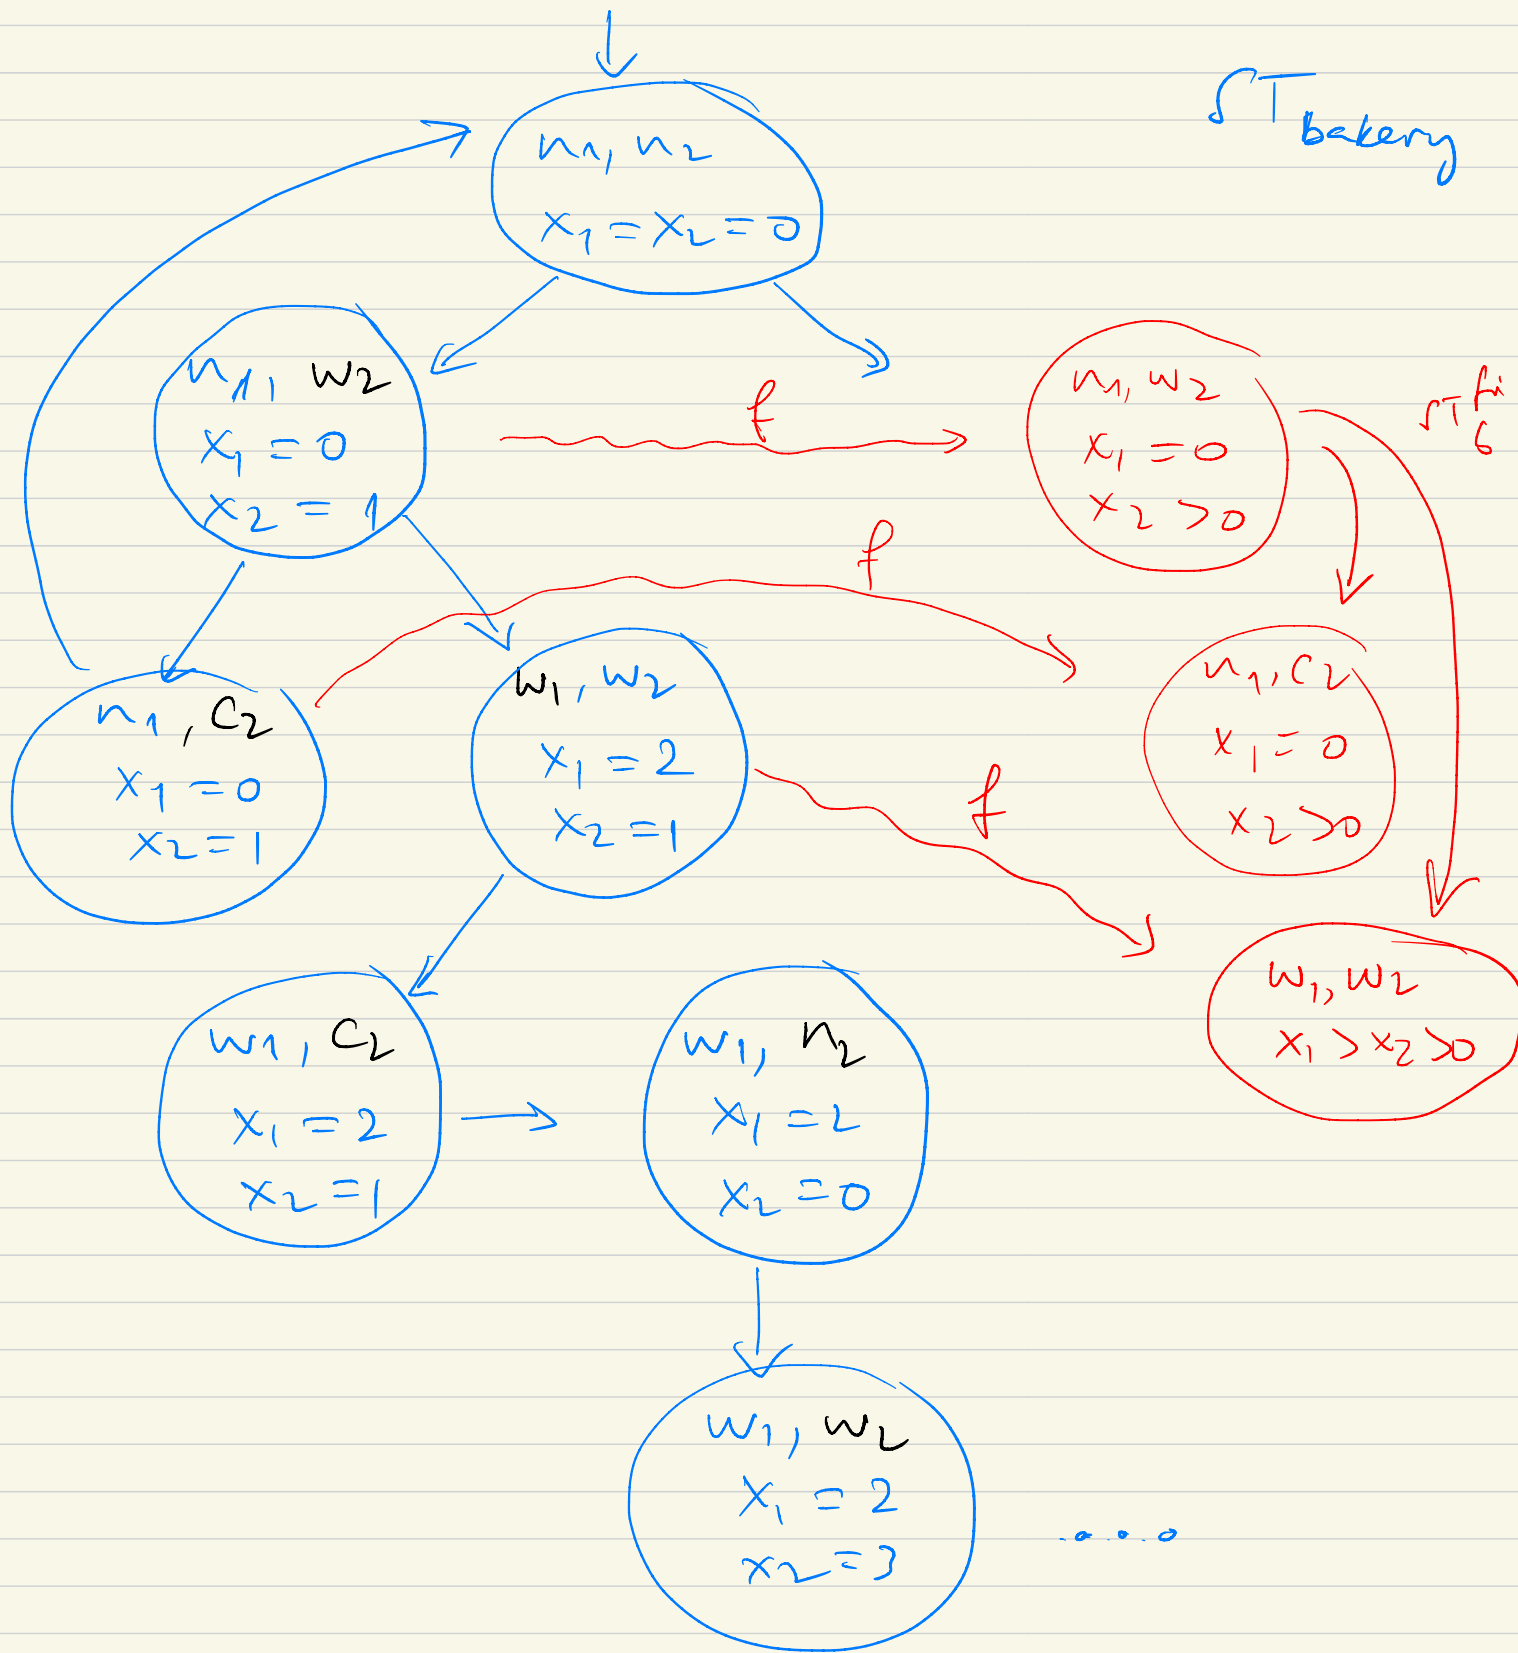 n1, n2
x1 = x2 = 0
T bakery
n1, w2
x1 = 0
x2 = 1
f
n1, w2
x1 = 0
x2 > 0
f
n1, c2
x1 = 0
x2 = 1
w1, w2
x1 = 2
x2 = 1
n1, c2
x1 = 0
x2 > 0
f
w1, w2
x1 > x2 > 0
w1, c2
x1 = 2
x2 = 1
w1, n2
x1 = 2
x2 = 0
w1, w2
x1 = 2
x2 = 3
....